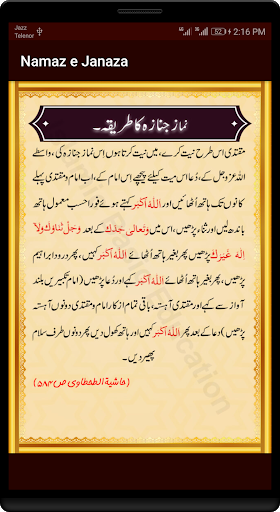 Jazz
Telenor
52
2:16 PM
Namaz e Janaza
نمازِ جنازہ کا طریقہ۔
مقتدی اس طرح نیت کرے، میں نیت کرتا ہوں اس نماز جنازہ کی، واسطے
اللہ عزوجل کے، دُعا اس میت کیلئے پیچھے اس امام کے، اب امام و مقتدی پہلے
کانوں تک ہاتھ اُٹھائیں اور اللهُ اَكْبَر کہتے ہوئے فوراً حسب معمول ہاتھ
باندھ لیں اور ثناء پڑھیں، اس میں وَتَعَالٰى جَدُّكَ کے بعد وَجَلَّ ثَنَاؤُكَ وَلَا
اِلٰهَ غَيْرُكَ پڑھیں، پھر بغیر ہاتھ اُٹھائے اللهُ اَكْبَر کہیں، پھر درودِ ابراہیم
پڑھیں، پھر بغیر ہاتھ اُٹھائے اللهُ اَكْبَر کہیں اور دُعا پڑھیں (امام تکبیریں بلند
آواز سے کہے اور مقتدی آہستہ، باقی تمام اذکار امام و مقتدی دونوں آہستہ
پڑھیں) دعا کے بعد پھر اللهُ اَكْبَر کہیں اور ہاتھ کھول دیں پھر دونوں طرف سلام
پھیر دیں۔
(حاشیۃ الطحطاوی ص ۵۸۴)